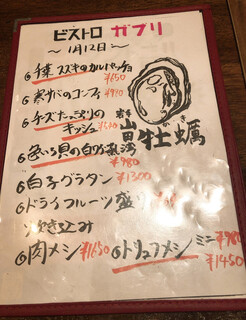 ビストロ ガブリ
〜1月12日〜
スズキのカルパッチョ
¥650
寒サバのコンフィ ¥980
チーズたっぷりの
キッシュ
岩手
山田
牡蠣
貝の白ワイン蒸し
¥980
白子グラタン ¥1300
ドライフルーツ盛り
炊き込み
肉メシ ¥1650
トリュフメシ ミニ ¥980
¥1450